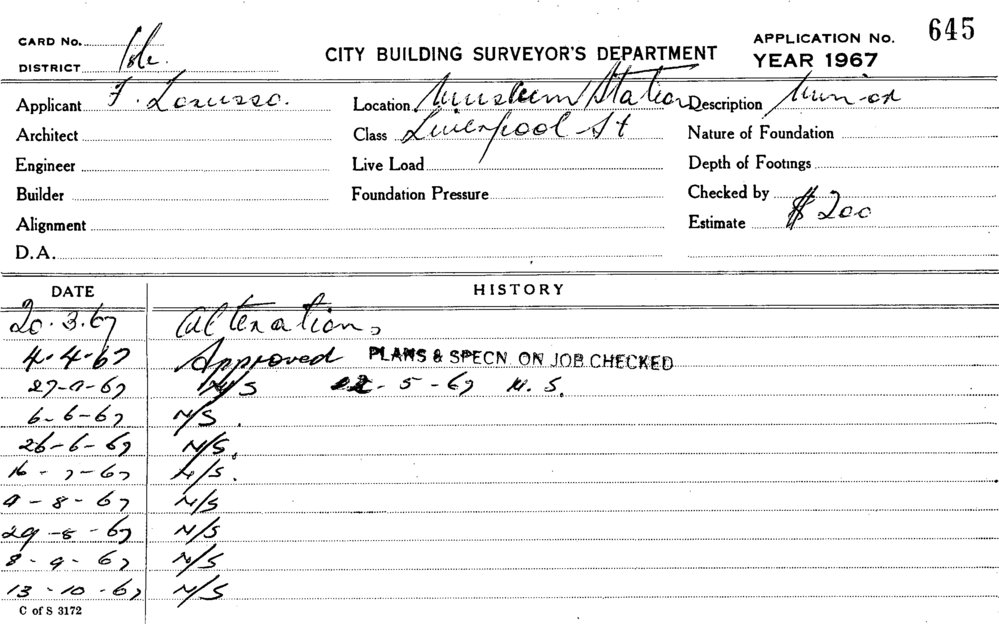 645
CARD No.
CITY BUILDING SURVEYOR'S DEPARTMENT
APPLICATION No.
DISTRICT
YEAR 1967
Applicant F. Lorusso.
Location Museum Station
Description
Architect
Class Liverpool St
Nature of Foundation
Engineer
Live Load
Depth of Footings
Builder
Foundation Pressure
Checked by
Alignment
Estimate $200
D.A.
DATE
HISTORY
20.3.67 Alterations
4.4.67 Approved PLANS & SPECN. ON JOB CHECKED
N/S 22-5-67 N.S.
6-6-67 N/S.
26-6-67 N/S.
16-7-67 N/S.
9-8-67 N/S
29-8-67 N/S
8-9-67 N/S
13-10-67 N/S
C of S 3172